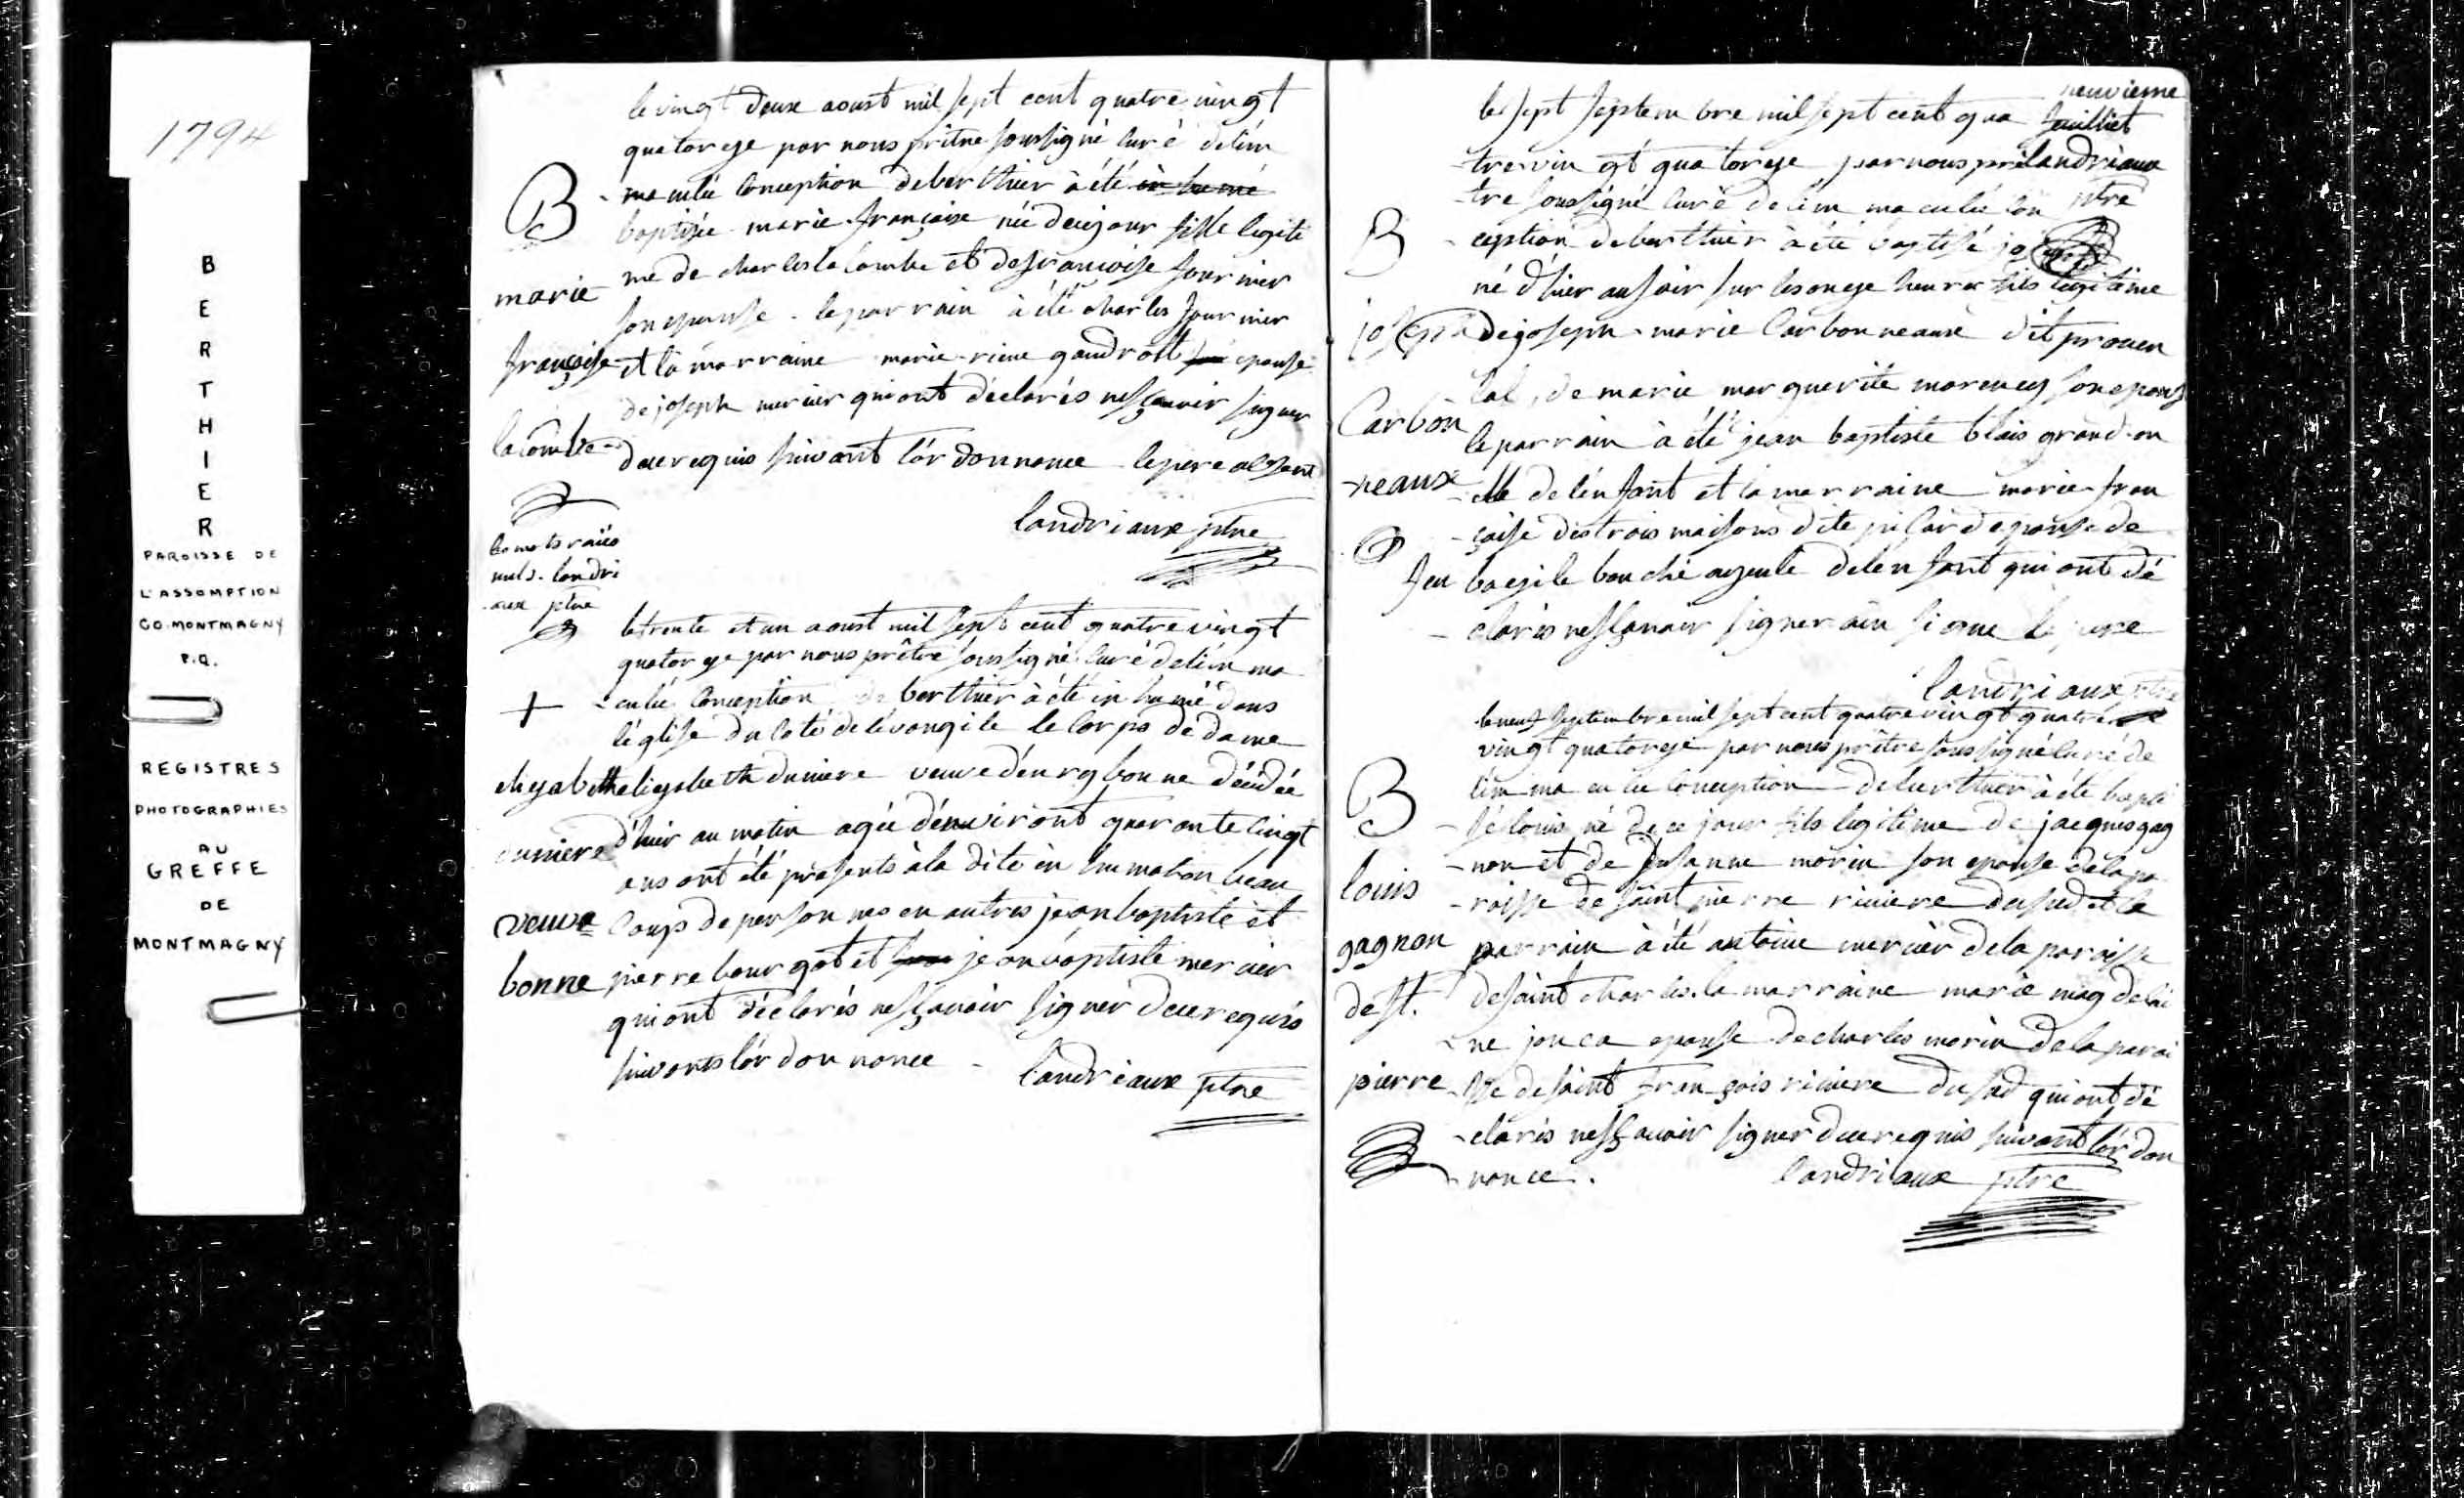 1794
B
E
R
T
H
I
E
R
PAROISSE DE
L'ASSOMPTION
CO. MONTMAGNY
P.Q.
REGISTRES
PHOTOGRAPHIES
AU
GREFFE
DE
MONTMAGNY
le vingt deux aoust mil sept cent quatre vingt
quatorze par nous prêtre soussigné curé de l'im
- maculée conception de berthier à été in humé
B
baptisée marie françoise née dece jour fille legiti
me de charles la combe et de françoise fournier
son epouse - le parrain à été charles fournier
et la marraine marie reine gaudrost epouse
de joseph mercier qui ont déclarés nesçavoir signer
de ce requis suivant l'ordonnance le pere absent
marie
françoise
lacombe
landriaux ptre
les mots raiés
nuls. landri
aux ptre
le trente et un aoust mil sept cent quatre vingt
quatorze par nous prêtre soussigné curé de l'im ma
- culée conception de berthier à été in humé dans
l'église du coté de l'évangile le corps de dame
elizabeth duniere veuve d'eurybonne décédée
d'hier au matin agée d'environt quarante cinqt
ans ont été présents à la dite in humation beau
coups de personnes en autres jean baptiste et
pierre bourgot et jean baptiste mercier
qui ont déclarés nesçavoir signer de ce requis
suivants l'ordonnance - landriaux ptre
+
elizabeth
duniere
veuve
bonne
neuvieme
feuillet
landriaux
ptre
le sept septembre mil sept cent qua
- tre vingt quatorze par nous prê
- tre soussigné curé de l'im maculée con
- ception de berthier à été baptisé joseph
né d'hier au soir sur les onze heures fils legitime
de joseph marie carbonneaux dit proven
cal, de marie marguerite morency son epouse
le parrain à été jean baptiste blais grand on
- cle de l'enfant et la marraine marie fran
- çoise des trois maisons dite picard epouse de
feu bazile bouché ayeule de l'enfant qui ont dé
- clarés nesçavoir signer ain signé le pere
B
joseph
Carbon
-neaux
landriaux ptre
le neuf septembre mil sept cent quatre vingt quatre
vingt quatorze par nous prêtre soussigné curé de
l'im ma cu lée conception de berthier à été bapti
- sé louis né de ce jour fils legitime de jacques gag
- non et de susanne morin son epouse de la pa
- roisse de saint pierre riviere du sud et le
parrain à été antoine mercier de la paroisse
de saint charles. la marraine marie magdelai
- ne jonca epouse de charles morin de la paroi
- sse de saint françois riviere du sud qui ont dé
- clarés nesçavoir signer de ce requis suivant l'ordon
- nance. landriaux ptre
B
louis
gagnon
de st.
pierre